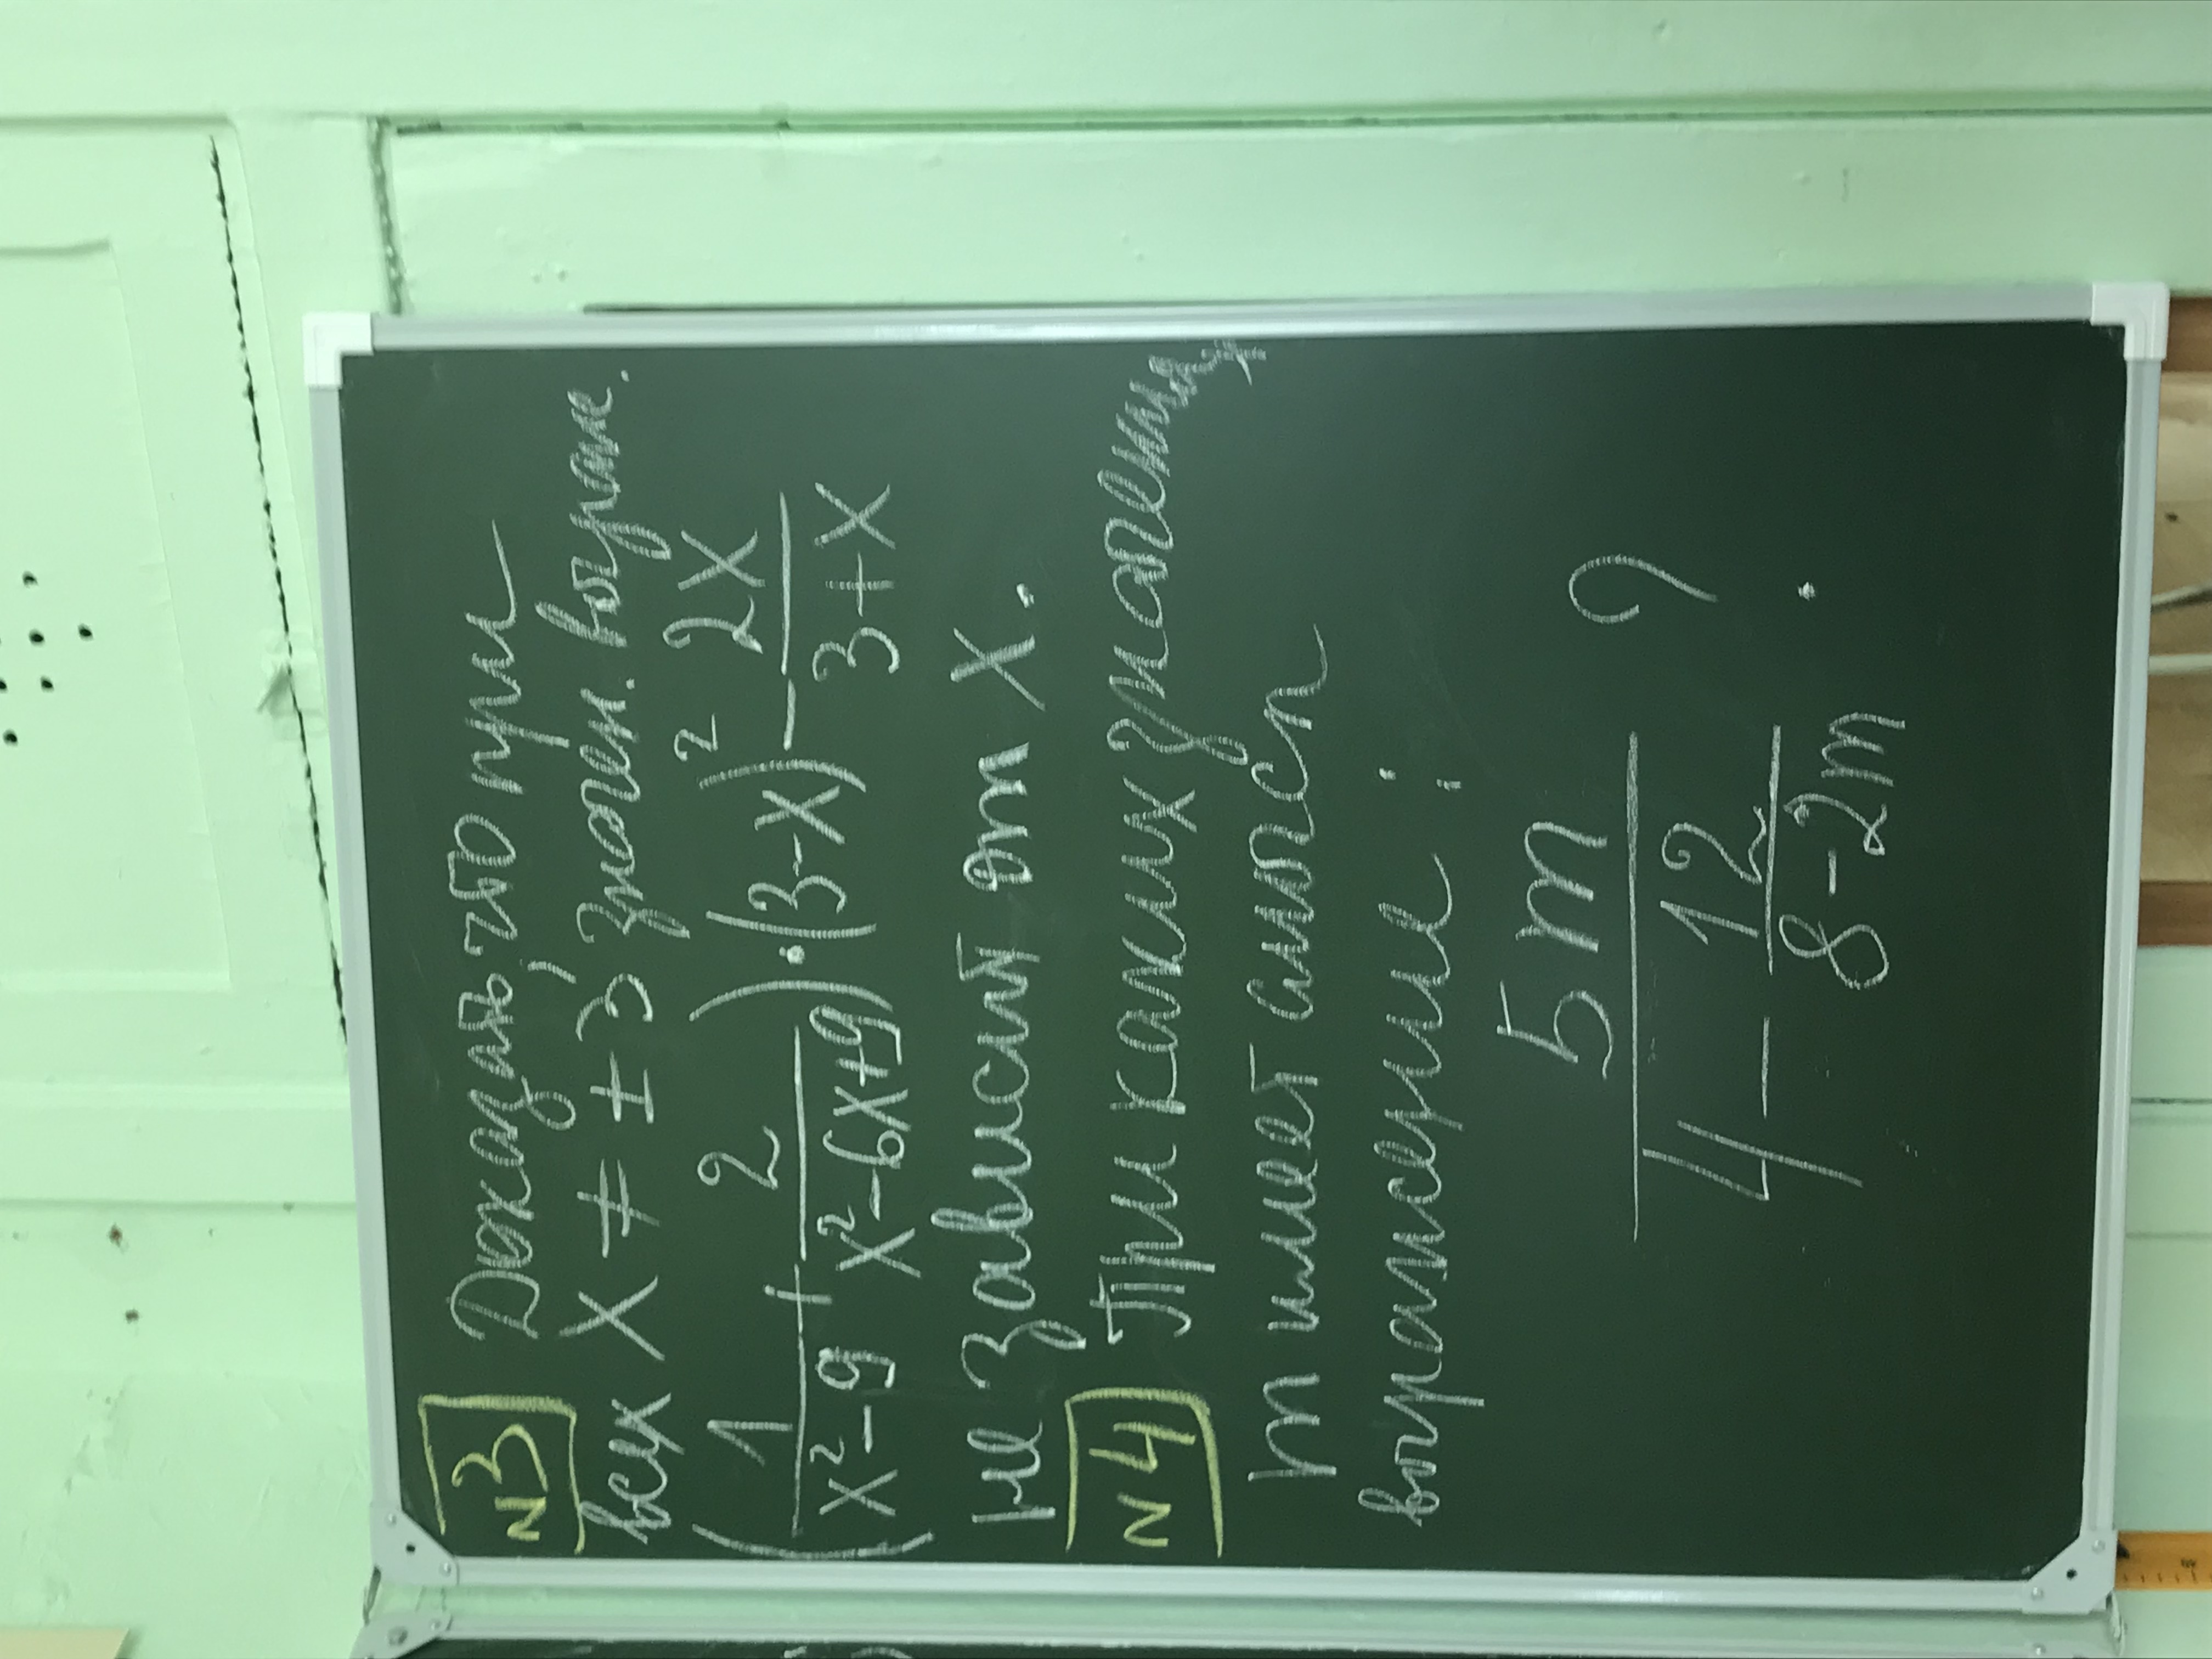 N3 Доказать, что при
всех x ≠ ±3 значен. выраж.
(1/(x²-9) + 2/(x²-6x+9)) · (3-x)² - 2x/(3+x)
не зависит от x.
N4 При каких значениях
m имеет смысл
выражение :
5m/(4 - 12/(8-2m)) ?